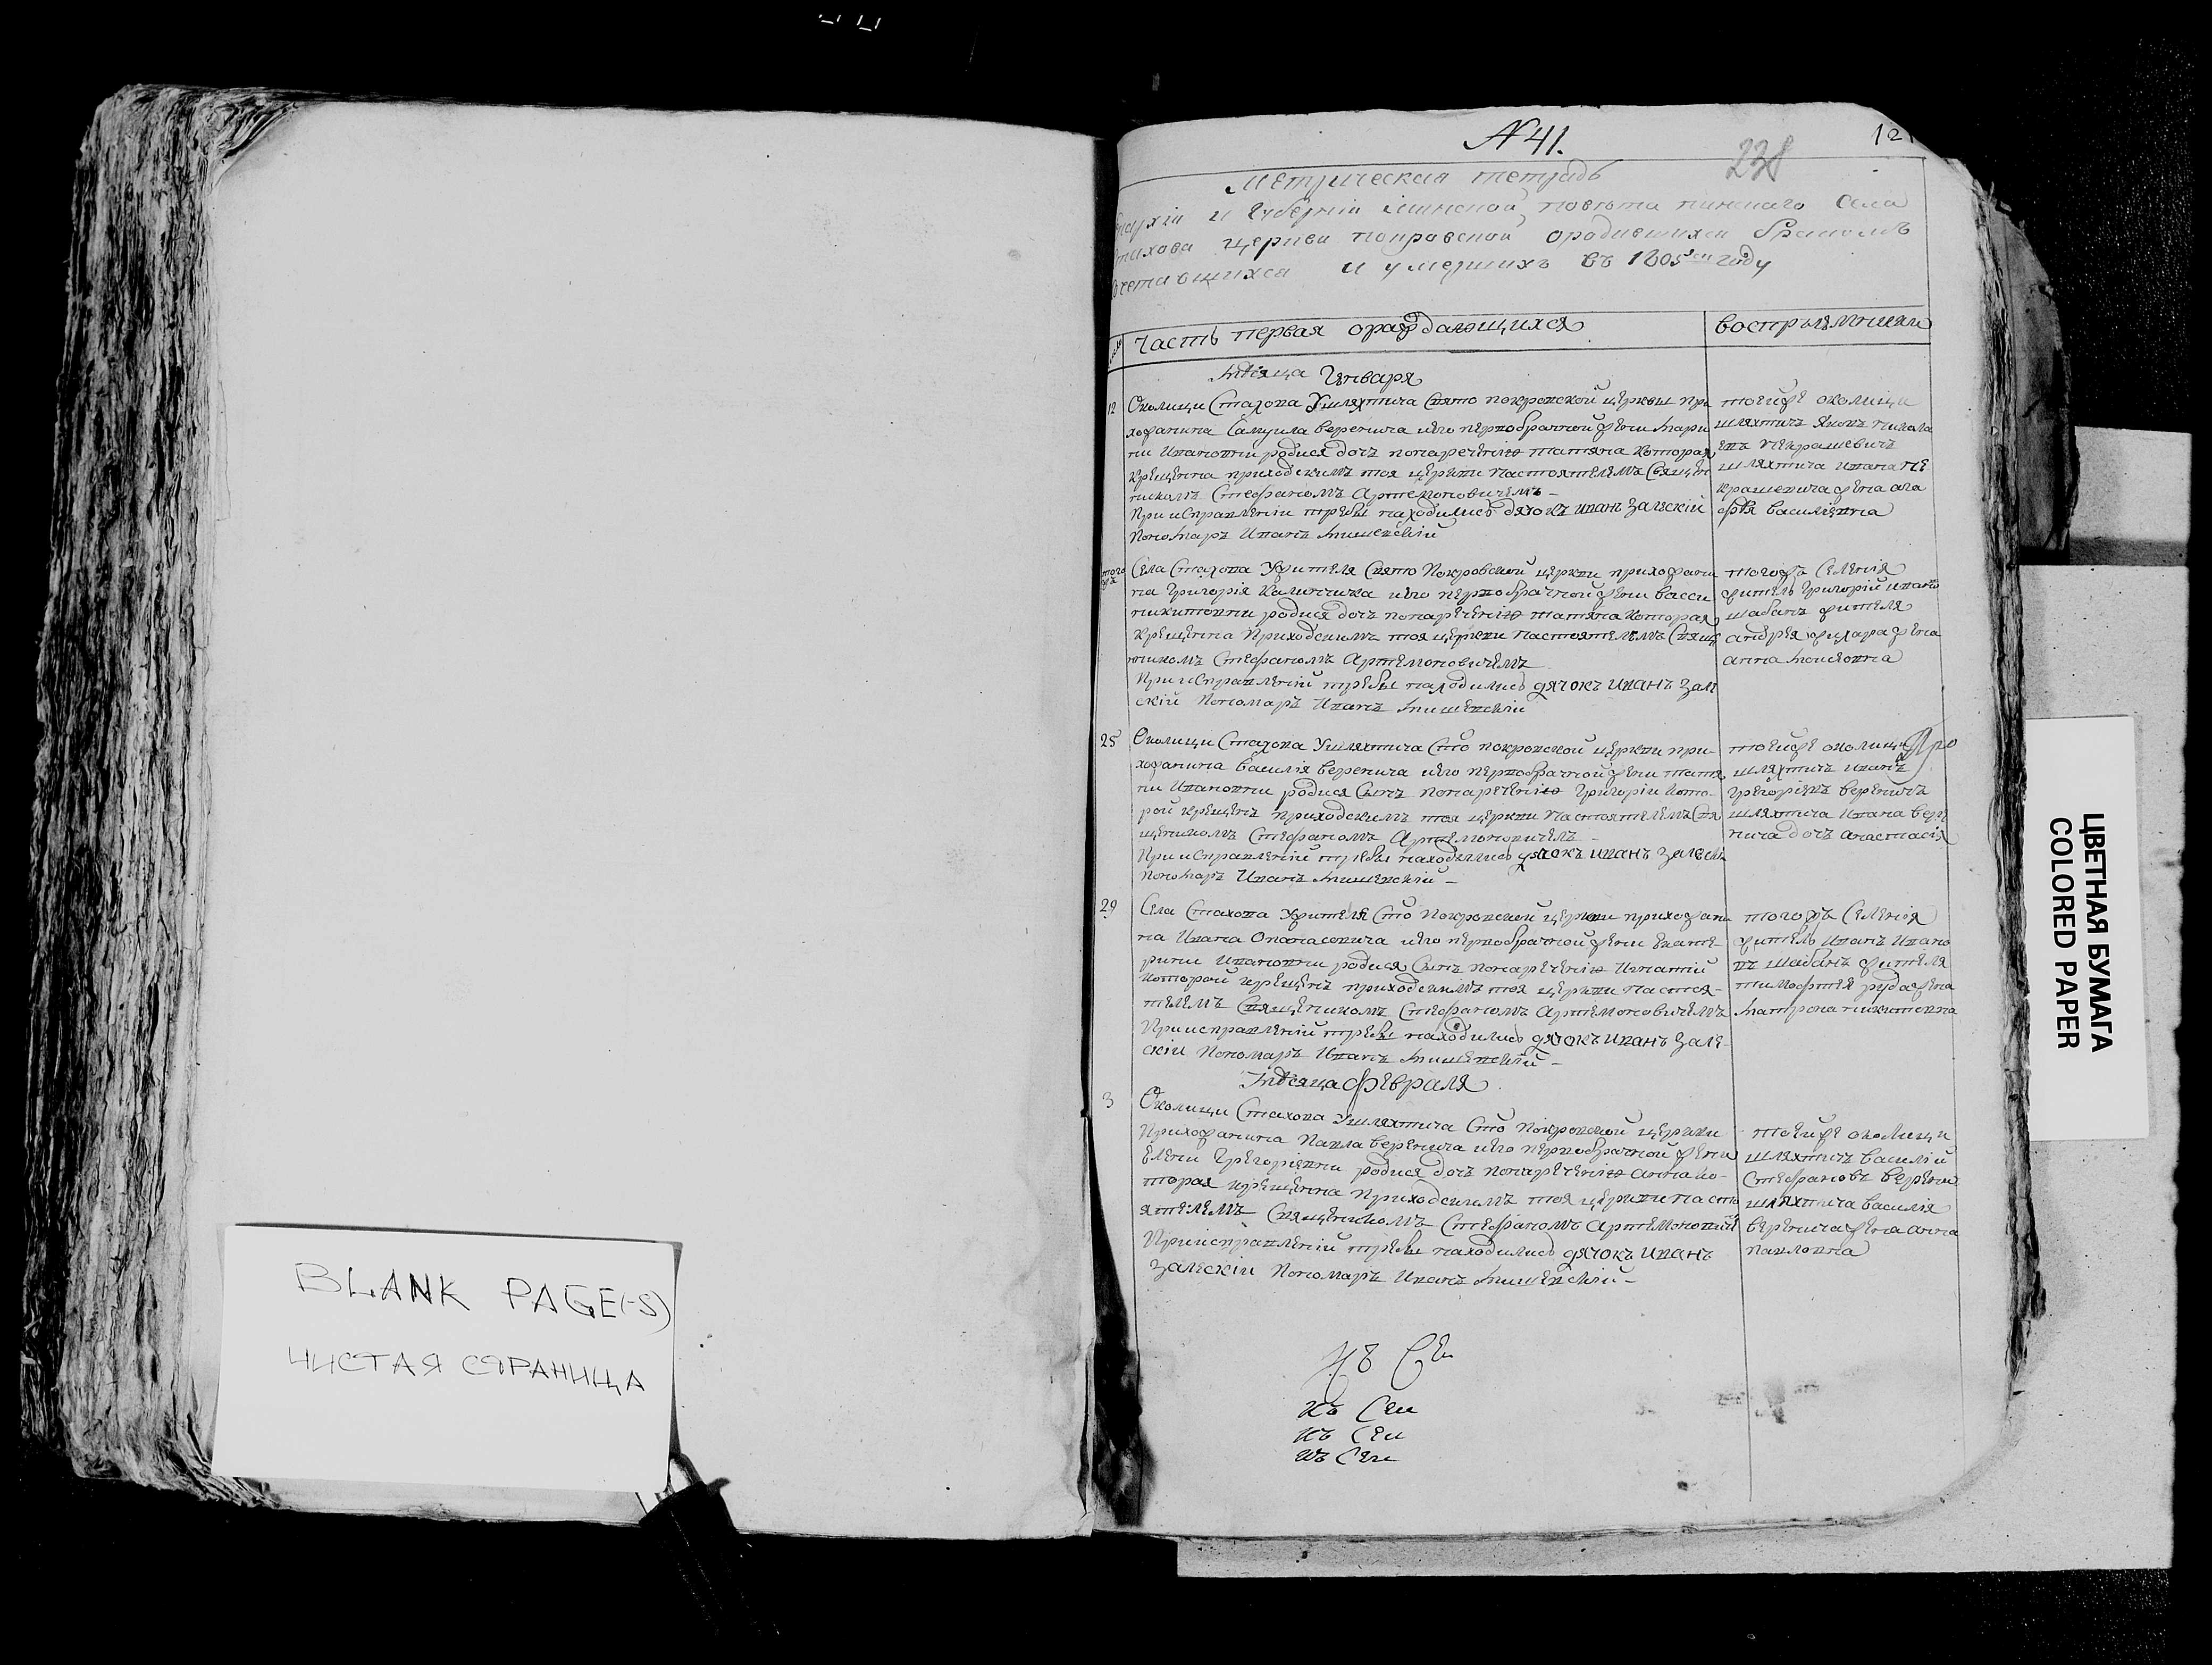 BLANK PAGE(-S)
ЧИСТАЯ СТРАНИЦА
N 41.
238
12
Метрическая тетрадь
и Губерніи Минской повѣта пинскаго Села
церкви покровской ородившихся бракомъ
и умершихъ въ 1805 году
Часть первая ораждающихся
воспріемники
Мѣсяца Генваря
12
Околици Стахова Ушляхтича Свято покровской церкви при
хожанина Самуила веренича иего первобрачной жени Мари
ни Ивановни родися дочъ понареченію татяна Которая
крещенна приходскимъ тоя церкви Настоятелемъ Священ
никомъ Стефаномъ Артемоновичемъ –
При исправленіи требы находились дячокъ иванъ Залескій
Пономаръ Иванъ Мишевскій
тоейже околици
шляхтичъ Яковъ никола
евъ некрашевичъ
шляхтича ивана не
крашевича жена ага
фѣя василіевна
того
Села Стахова Ужителя Свято Покровской церкви прихожани
на Григорія Калинчика иего первобрачной жени васси
никитовни родися дочъ понареченію татяна Которая
Крещенна Приходскимъ тоя церкви настоятелемъ Свяще
нникомъ Стефаномъ Артемоновичемъ
При исправленій требы находились дячокъ иванъ Зале
скій Пономаръ Иванъ Мишевскій
тогожъ Селенія
житель Григорій ивано
шабанъ жителя
андрея жена
анна Моисеовна
25
Околици Стахова Ушляхтича Сто покровской церкви при-
хожанина Василія веренича иего первобрачной жени татя
ни Ивановни родися Сынъ понареченію Григорій кото-
рой крещенъ приходскимъ тоя церкви Настоятелемъ Свя
щеникомъ Стефаномъ Артемоновичемъ –
При исправленій требы находились дячокъ иванъ Залеск
Пономаръ Иванъ Мишевскій –
тоейже околици
шляхтичъ иванъ
Грегоріевъ вереничъ
шляхтича Ивана вере
нича дочъ анастасія
29
Села Стахова Ужителя Сто Покровской церкви прихожани
на Ивана Опанасовича иего первобрачной жени Екате-
рини Ивановни родися Сынъ понареченію Игнатій
которой крещенъ приходскимъ тоя церкви настоя-
телемъ Священикомъ Стефаномъ Артемоновичемъ
При исправленій требы находились дячокъ иванъ Зале-
скій Пономаръ Иванъ Мишевскій –
тогожъ Селенія
житель Иванъ Ивано
въ шабанъ жителя
тимофтея жена
Матрона никитовна
Мѣсяца Февраля
3
Околици Стахова Ушляхтича Сто Покровской церкви
Прихожанина Павла веренича иего первобрачной жени
Елени Грегоріевни родися дочъ понареченію анна ко-
торая крещенна Приходскимъ тоя церкви насто
ятелемъ Священикомъ Стефаномъ Артемонович
При исправленій требы находились дячокъ Иванъ
Залескій Пономаръ Иванъ Мишевскій –
тоейже околици
шляхтичъ василій
Стефановъ веренич
шляхтича василія
веренича жена анна
павловна
ЦВЕТНАЯ БУМАГА
COLORED PAPER